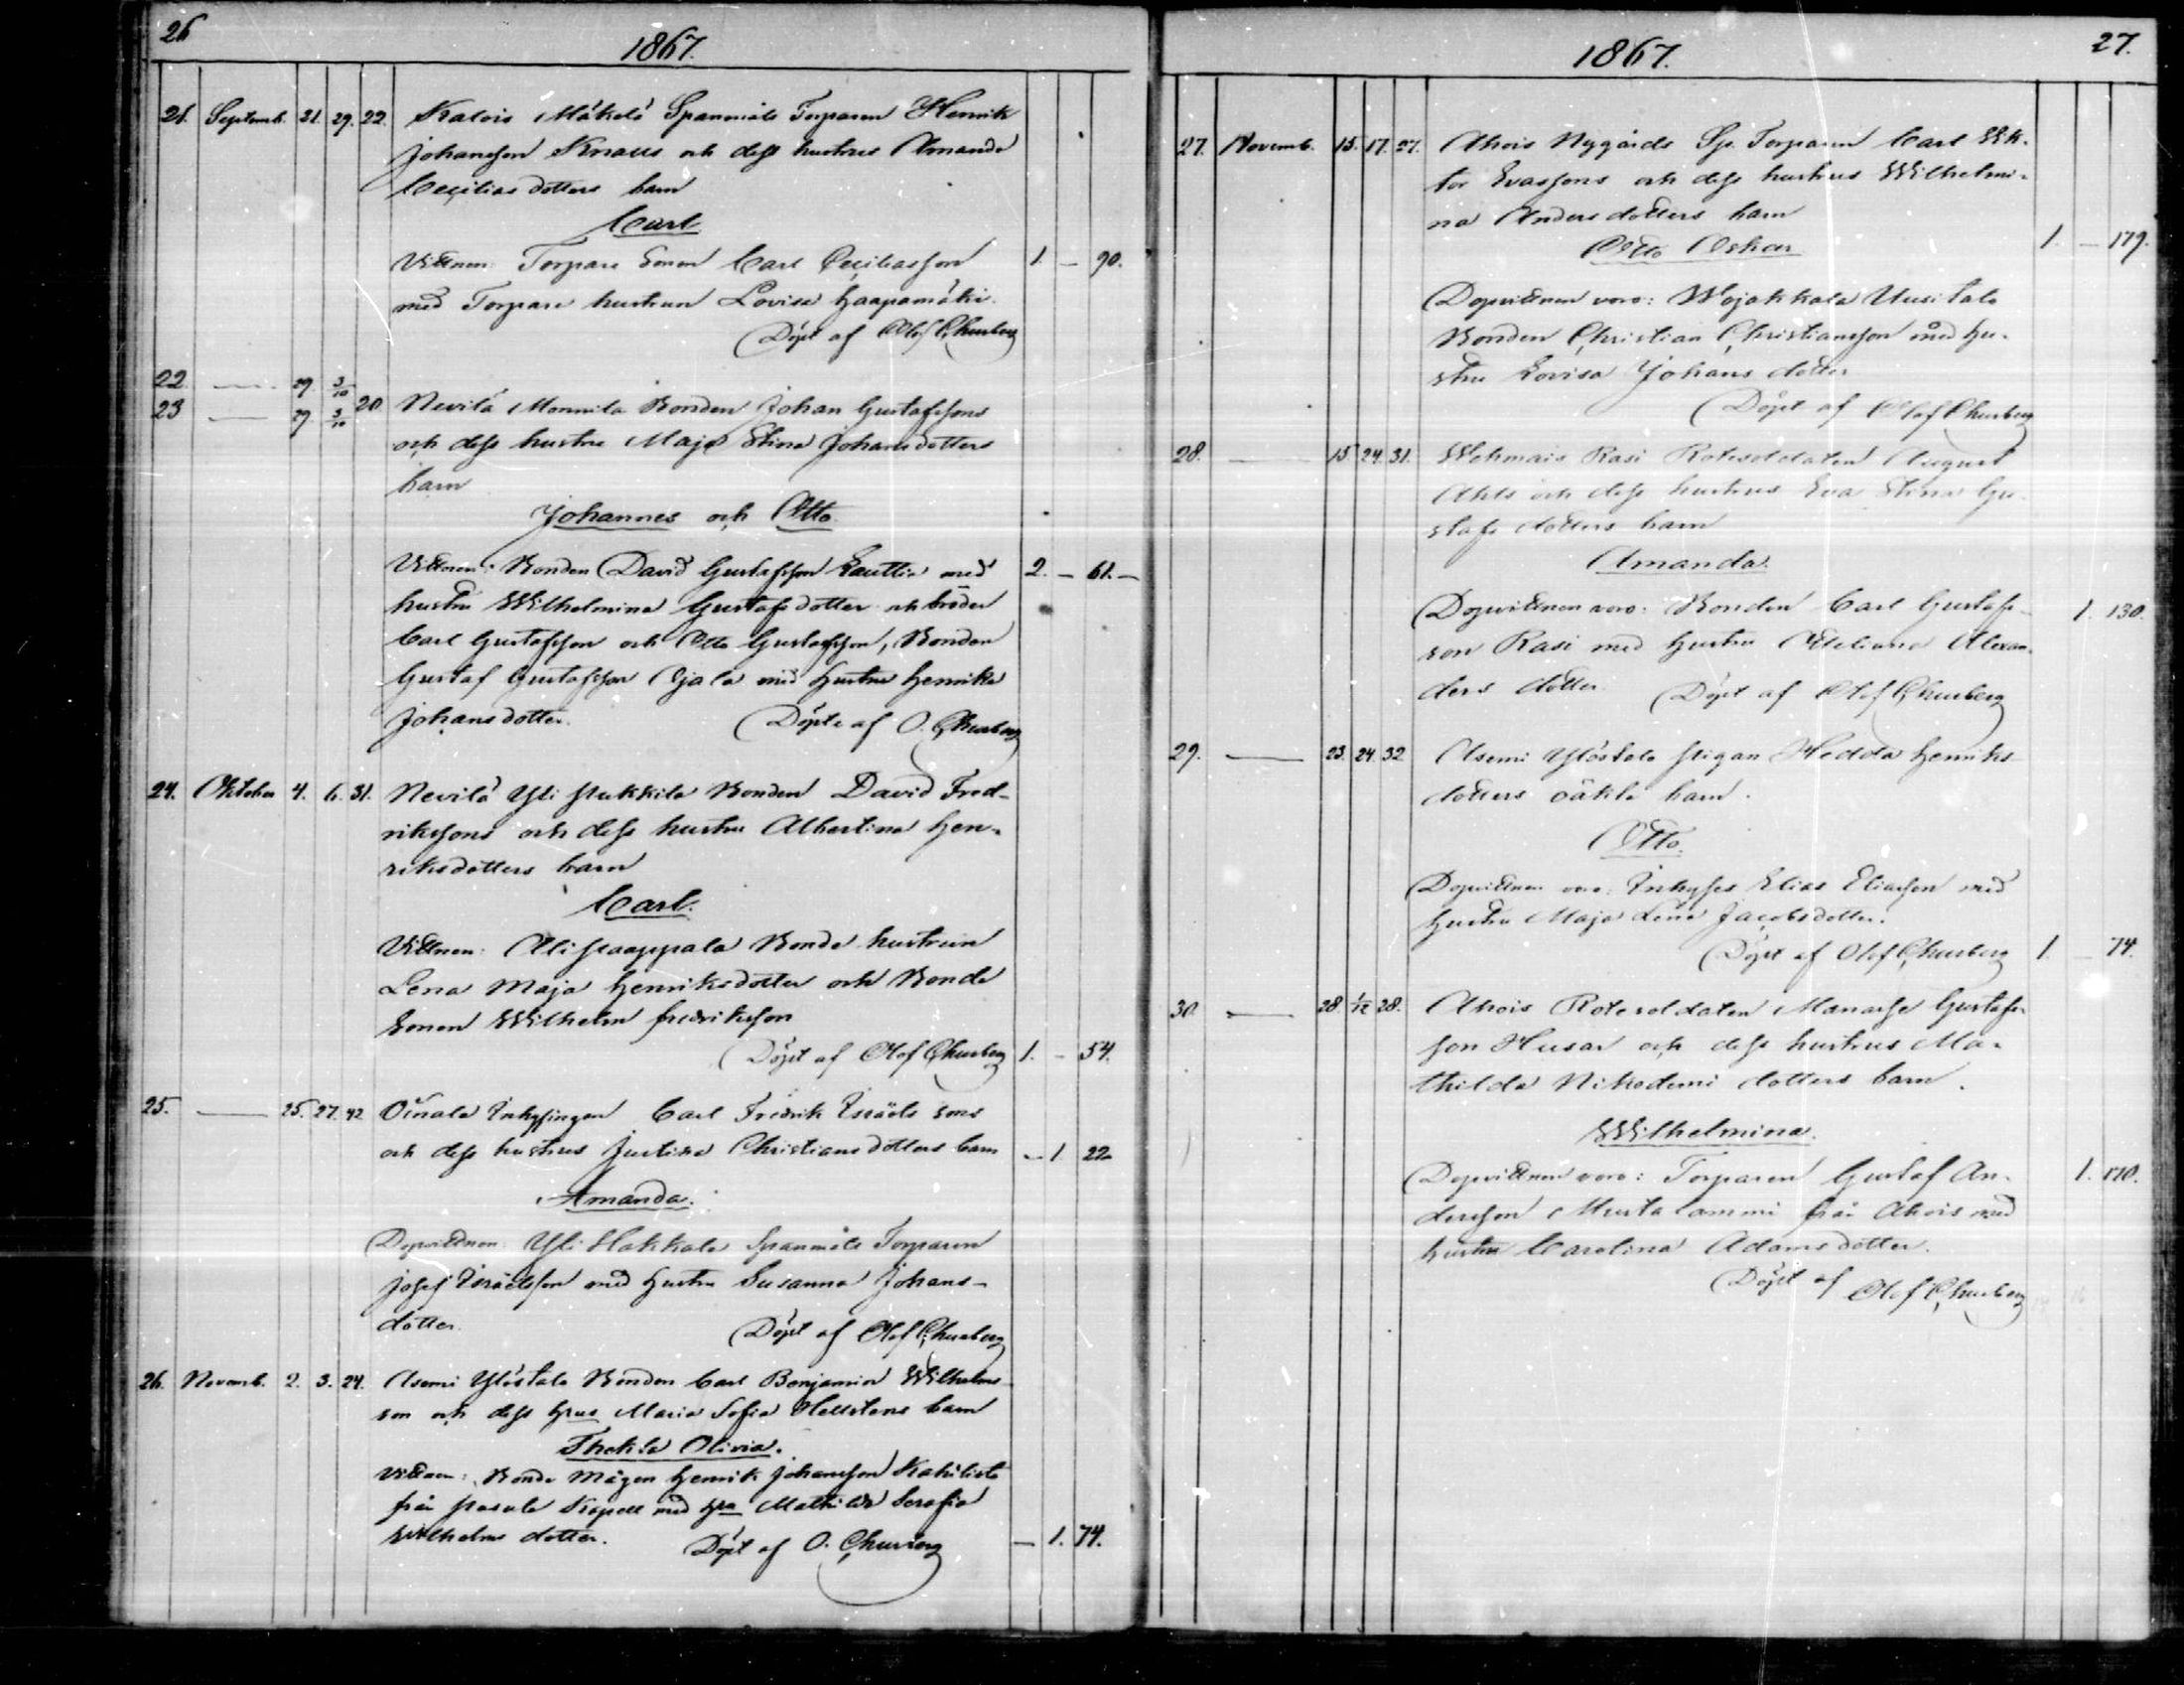 26
1867.
21. Septemb. 21. 29. 22. Kalois Mäkelä Spannmåls Torparen Henrik
Johansson Knaus och dess hustrus Amanda
Cecilias dotters barn
Carl
Vittnen: Torpare Sonen Carl Ceciliasson 1. – 90.
med Torpare hustrun Lovisa Haapamäki.
Döpt af Olof Churberg
22 — 29. 3/10
23 — 29. 3/10 20 Nevilä Monnila Bonden Johan Gustafssons
och dess hustru Maja Stina Johansdotters
barn
Johannes och Otto.
Vittnen: Bonden David Gustafsson Lauttia med 2. – 61. –
hustru Wilhelmina Gustafsdotter och bröder
Carl Gustafsson och Otto Gustafsson, Bonden
Gustaf Gustafsson Ojala med hustru Henrika
Johansdotter. Döpte af O. Churberg
24. Oktober 4. 6. 31. Nevilä Yli Pukkila Bonden David Fred-
rikssons och dess hustru Albertina Hen-
riksdotters barn
Carl.
Vittnen: Ali Paappala Bonde hustrun
Lena Maja Henriksdotter och Bonde
Sonen Wilhelm Fredriksson
Döpt af Olof Churberg 1. – 54.
25. — 25. 27. 42 Oinala Inhysingen Carl Fredrik Israels sons
och dess hustrus Justina Christiansdotters barn – 1 22
Amanda.
Dopvittnen: Yli Hakkala Spanmåls Torparen
Josef Israelsson med hustru Susanna Johans-
dotter. Döpt af Olof Churberg
26. Novemb. 2. 3. 24. Asemi Ylöstalo Bonden Carl Benjamin Wilhelms-
son och dess hrus Maria Sofia Hellstens barn
Thekla Olivia.
Vittnen: Bonde Mågen Henrik Johansson Kahilisto
från Kapell med hra Mathilda Serafia
Wilhelms dotter. Döpt af O. Churberg – 1. 74.
1867. 27.
27. Novemb. 15. 17. 27. Ahois Nygårds Sp. Torparen Carl Wik-
tor Evassons och dess hustrus Wilhelmi-
na Anders dotters barn
Otto Oskar 1. – 179.
Dopvittnen voro: Wojakkala Uusitalo
Bonden Christian Christiansson med hu-
stru Lovisa Johans dotter
Döpt af Olof Churberg
28. — 15 24. 31. Wehmais Rasi Rotesoldaten August
Ahls och dess hustrus Eva Stina Gu-
stafs dotters barn
Amanda
Dopvittnen voro: Bonden Carl Gustafs- 1. 130.
son Rasi med hustru Alexan-
ders dotter. Döpt af Olof Churberg
29. — 23. 24. 32 Asemi Ylöstalo Pigan Hedda Henriks
dotters oäkta barn.
Otto.
Dopvittnen voro: Inhyses Elias Eliasson med
hustru Maja Lena Jacobsdotter.
Döpt af Olof Churberg 1. – 74.
30. — 28. 1/12 28. Ahois Rotesoldaten Manasse Gustafs-
son Husar och dess hustrus Ma-
thilda Nikodemi dotters barn.
Wilhelmina.
Dopvittnen voro: Torparen Gustaf An- 1. 170.
dersson Mustalammi från Ahois med
hustru Carolina Adams dotter.
Döpt af Olof Churberg